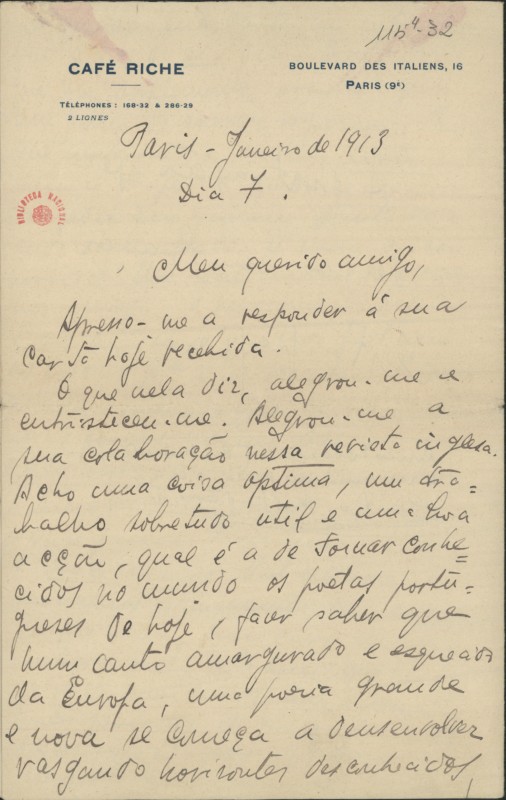 115⁴-32
CAFÉ RICHE
BOULEVARD DES ITALIENS, 16
PARIS (9ᵉ)
TÉLÉPHONES : 168-32 & 286-29
2 LIGNES
Paris - Janeiro de 1913
Dia 7.
BIBLIOTECA NACIONAL
Meu querido amigo,
Apresso-me a responder á sua
carta hoje recebida.
O que nela diz, alegrou-me e
entristeceu-me. Alegrou-me a
sua colaboração nessa revista inglesa.
Acho uma coisa optima, um tra=
balho sobretudo util e uma boa
acção, qual é a de tornar conhe=
cidos no mundo os poetas portu=
gueses de hoje, fazer saber que
num canto amargurado e esquecido
da Europa, uma poesia grande
e nova se começa a densenvolver
rasgando horisontes desconhecidos,